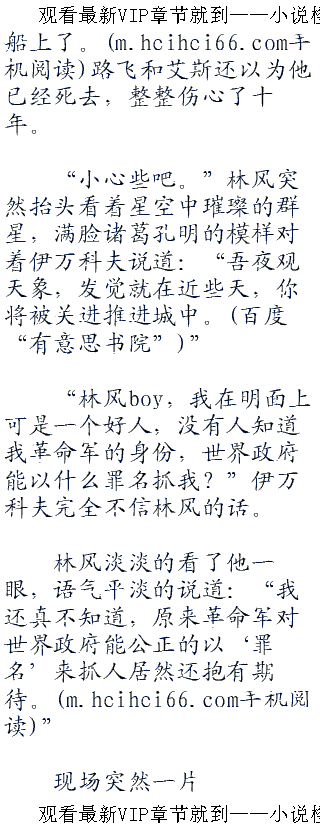 观看最新VIP章节就到——小说
船上了。(m.hcihci66.com手
机阅读)路飞和艾斯还以为他
已经死去，整整伤心了十
年。
“小心些吧。”林风突
然抬头看着星空中璀璨的群
星，满脸诸葛孔明的模样对
着伊万科夫说道：“吾夜观
天象，发觉就在近些天，你
将被关进推进城中。(百度
“有意思书院”)”
“林风boy，我在明面上
可是一个好人，没有人知道
我革命军的身份，世界政府
能以什么罪名抓我？”伊万
科夫完全不信林风的话。
林风淡淡的看了他一
眼，语气平淡的说道：“我
还真不知道，原来革命军对
世界政府能公正的以‘罪
名’来抓人居然还抱有期
待。(m.hcihci66.com手机阅
读)”
现场突然一片
观看最新VIP章节就到——小说